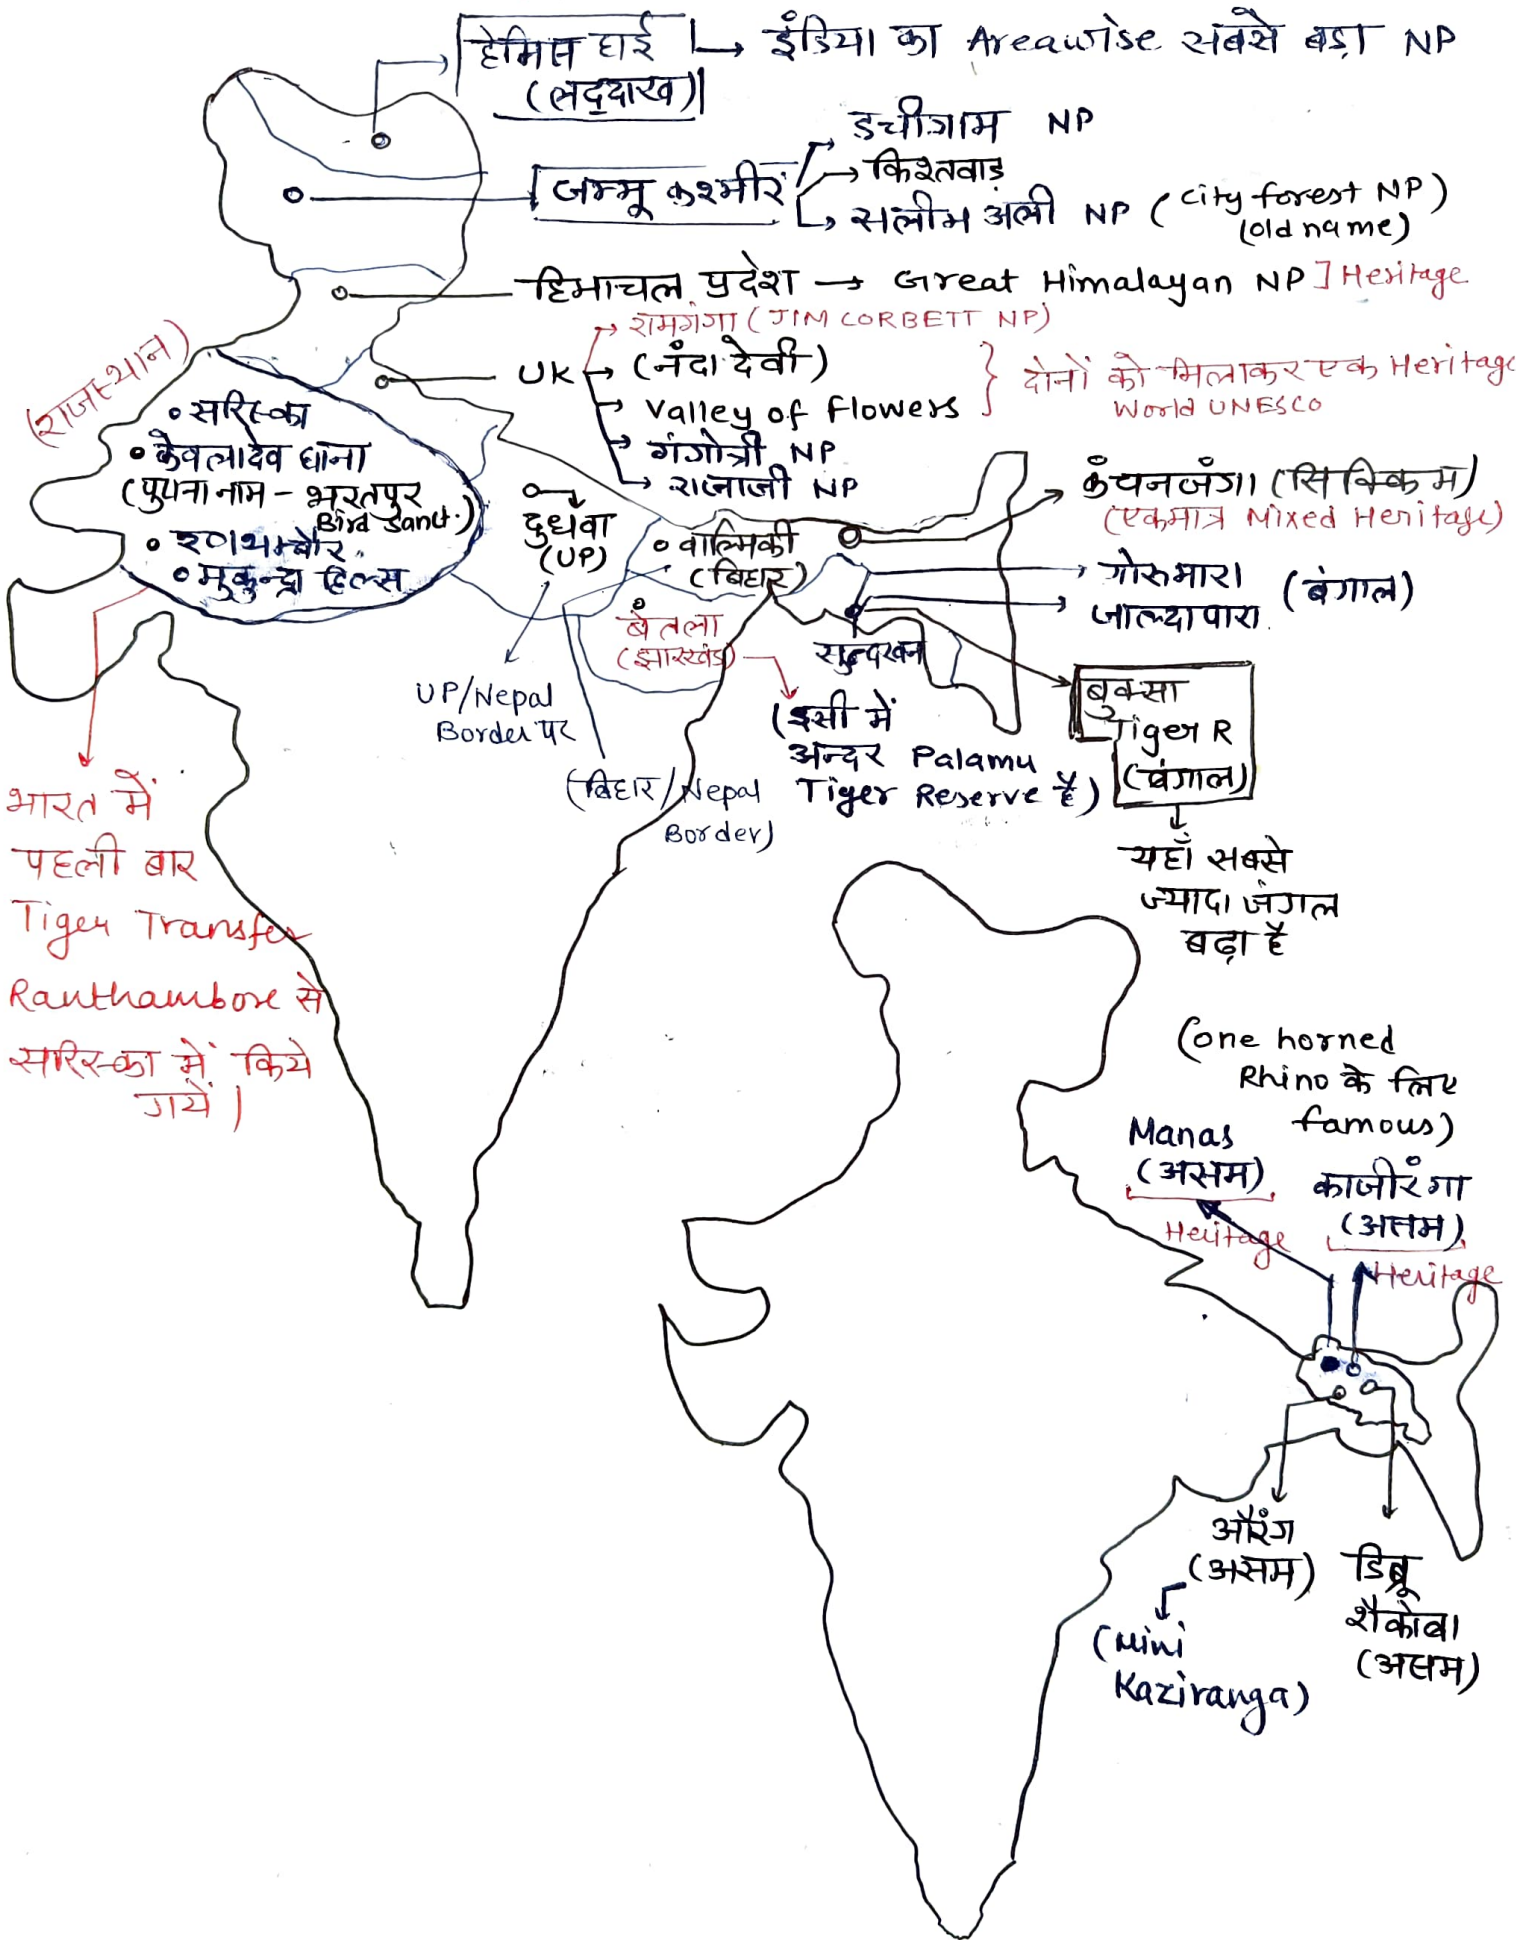 हेमिस हाई → इंडिया का Areawise सबसे बड़ा NP
(लद्दाख)
जम्मू कश्मीर
→ डचीगाम NP
→ किश्तवाड़
→ सलीम अली NP (City forest NP)
(old name)
हिमाचल प्रदेश → Great Himalayan NP ] Heritage
UK
→ रामगंगा (JIM CORBETT NP)
→ (नंदा देवी)
→ Valley of Flowers
} दोनों को मिलाकर एक Heritage
World UNESCO
→ गंगोत्री NP
→ राजाजी NP
(राजस्थान)
• सरिस्का
• केवलादेव घाना
(पुराना नाम - भरतपुर
Bird Sanct.)
• रणथम्बौर
• मुकुन्द्रा हिल्स
दुधवा
(UP)
UP/Nepal
Border पर
• वाल्मिकी
(बिहार)
(बिहार/Nepal
Border)
बेतला
(झारखंड)
(इसी में
अन्दर Palamu
Tiger Reserve है)
कंचनजंगा (सिक्किम)
(एकमात्र Mixed Heritage)
गोरुमारा
जाल्दापारा
(बंगाल)
सुन्दरवन
बुक्सा
Tiger R
(बंगाल)
यहाँ सबसे
ज्यादा जंगल
बढ़ा है
भारत में
पहली बार
Tiger Transfer
Ranthambore से
सरिस्का में किये
गये |
(one horned
Rhino के लिए
famous)
Manas
(असम)
Heritage
काजीरंगा
(असम)
Heritage
औरंग
(असम)
(Mini
Kaziranga)
डिब्रू
शैकोवा
(असम)